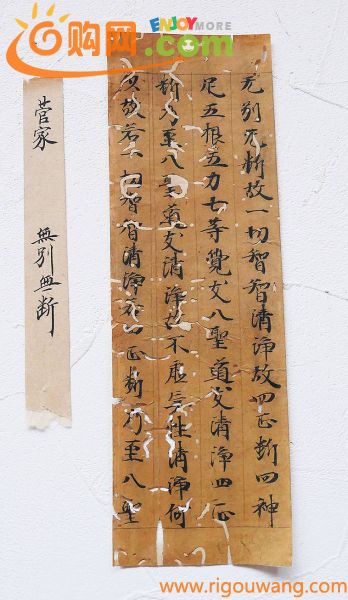 ENJOY MORE
购网.com
无別无断故一切智智清淨故四正断四神
足五根五力七等覺支八聖道支清淨四正
断乃至八聖道支清淨故不虛妄性清淨何
以故若一切智智清淨若四正断乃至八聖
菅家 無別無断
www.rigouwang.com